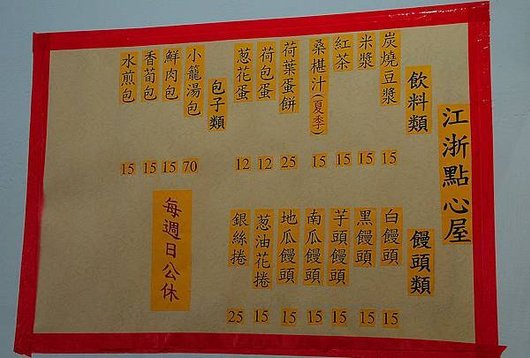 江浙點心屋
飲料類
炭燒豆漿 15
米漿 15
紅茶 15
桑椹汁(夏季) 15
荷葉蛋餅 25
荷包蛋 12
蔥花蛋 12
包子類
小籠湯包 70
鮮肉包 15
香菊包 15
水煎包 15
饅頭類
白饅頭 15
黑饅頭 15
芋頭饅頭 15
南瓜饅頭 15
地瓜饅頭 15
蔥油花捲 15
銀絲捲 25
每週日公休